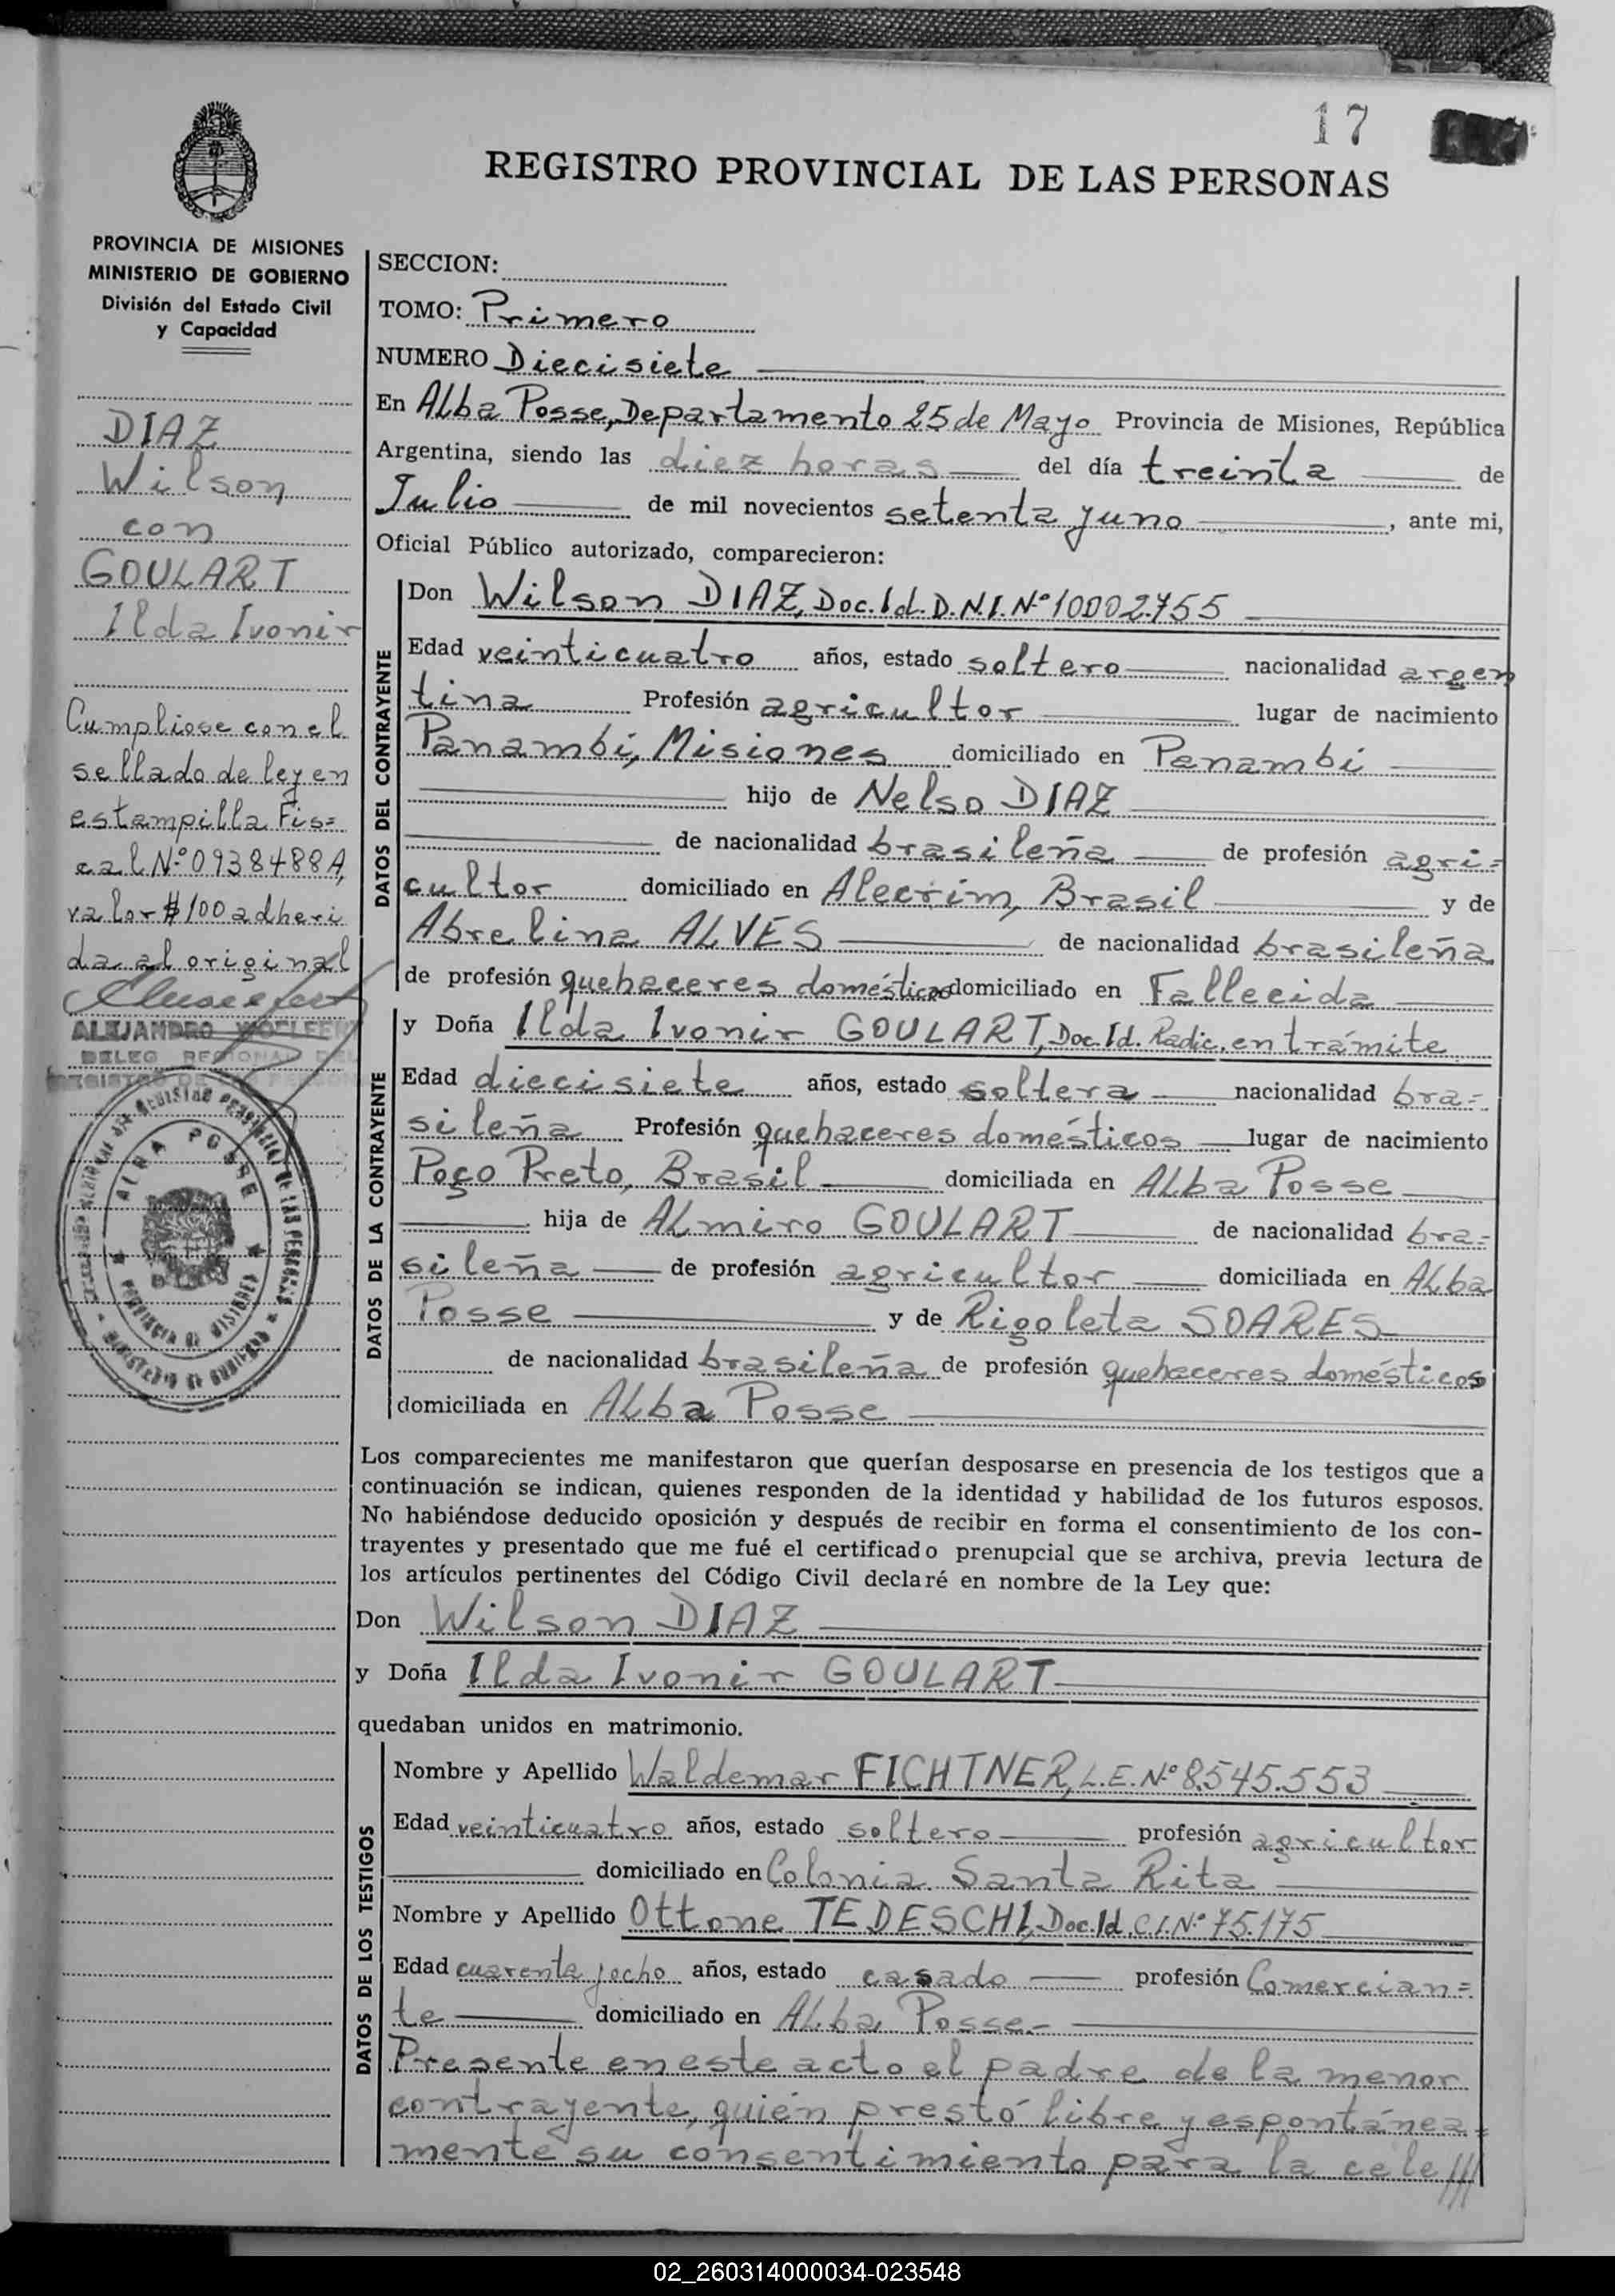 17
REGISTRO PROVINCIAL DE LAS PERSONAS
PROVINCIA DE MISIONES
MINISTERIO DE GOBIERNO
División del Estado Civil
y Capacidad
DIAZ
Wilson
con
GOULART
Ilda Ivonir
Cumpliose con el
sellado de ley en
estampilla Fis=
cal Nº 0938488A,
valor $100 adheri
da al original
ALEJANDRO
DELEG REGIONAL DEL
REGISTRO DE LAS PERSONAS
ALBA POSSE
PROVINCIA DE MISIONES
MINISTERIO DE GOBIERNO
SECCION:
TOMO: Primero
NUMERO Diecisiete
En Alba Posse, Departamento 25 de Mayo Provincia de Misiones, República
Argentina, siendo las diez horas del día treinta de
Julio de mil novecientos setenta y uno, ante mi,
Oficial Público autorizado, comparecieron:
DATOS DEL CONTRAYENTE
Don Wilson DIAZ, Doc. Id. D.N.I. Nº 10002.755
Edad veinticuatro años, estado soltero nacionalidad argen
tina Profesión agricultor lugar de nacimiento
Panambí, Misiones domiciliado en Panambí
hijo de Nelso DIAZ
de nacionalidad brasileña de profesión agri=
cultor domiciliado en Alecrim, Brasil y de
Abrelina ALVES de nacionalidad brasileña
de profesión quehaceres domésticos domiciliado en Fallecida
DATOS DE LA CONTRAYENTE
y Doña Ilda Ivonir GOULART, Doc. Id. Radic. en trámite
Edad diecisiete años, estado soltera nacionalidad bra=
sileña Profesión quehaceres domésticos lugar de nacimiento
Poço Preto, Brasil domiciliada en Alba Posse
hija de Almiro GOULART de nacionalidad bra=
sileña de profesión agricultor domiciliada en Alba
Posse y de Rigoleta SOARES
de nacionalidad brasileña de profesión quehaceres domésticos
domiciliada en Alba Posse
Los comparecientes me manifestaron que querían desposarse en presencia de los testigos que a
continuación se indican, quienes responden de la identidad y habilidad de los futuros esposos.
No habiéndose deducido oposición y después de recibir en forma el consentimiento de los con-
trayentes y presentado que me fué el certificado prenupcial que se archiva, previa lectura de
los artículos pertinentes del Código Civil declaré en nombre de la Ley que:
Don Wilson DIAZ
y Doña Ilda Ivonir GOULART
quedaban unidos en matrimonio.
DATOS DE LOS TESTIGOS
Nombre y Apellido Waldemar FICHTNER, L.E. Nº 8.545.553
Edad veinticuatro años, estado soltero profesión agricultor
domiciliado en Colonia Santa Rita
Nombre y Apellido Ottone TEDESCHI, Doc. Id. C.I. Nº 75.175
Edad cuarenta y ocho años, estado casado profesión Comercian=
te domiciliado en Alba Posse.-
Presente en este acto el padre de la menor
contrayente, quién prestó libre y espontánea=
mente su consentimiento para la cele///
02_260314000034-023548